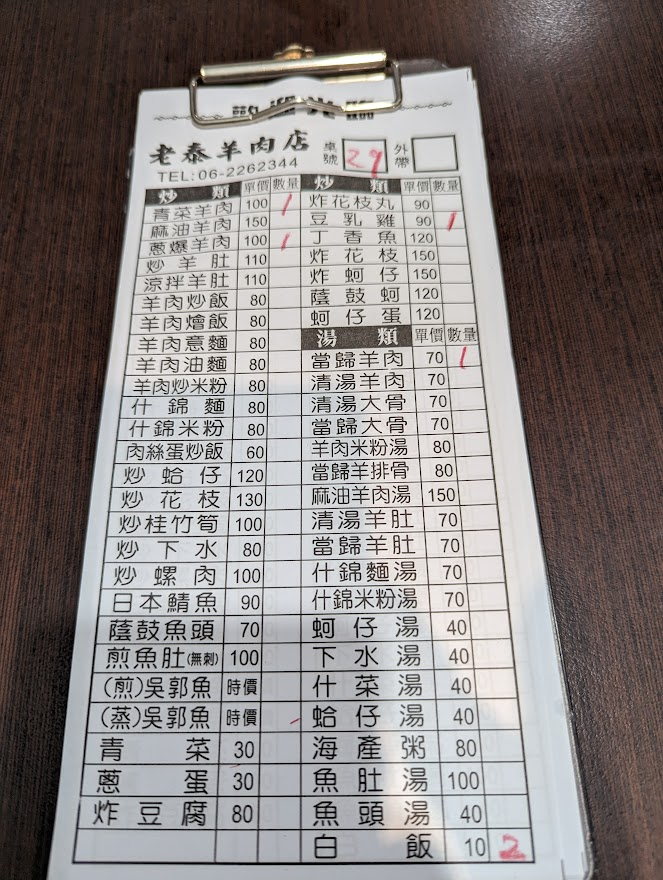 老泰羊肉店
TEL:06-2262344
桌號 29 外帶
炒類 單價 數量
青菜羊肉 100 1
麻油羊肉 150
蔥爆羊肉 100 1
炒羊肚 110
涼拌羊肚 110
羊肉炒飯 80
羊肉燴飯 80
羊肉意麵 80
羊肉油麵 80
羊肉炒米粉 80
什錦麵 80
什錦米粉 80
肉絲蛋炒飯 60
炒蛤仔 120
炒花枝 130
炒桂竹筍 100
炒下水 80
炒螺肉 100
日本鯖魚 90
蔭鼓魚頭 70
煎魚肚(無刺) 100
(煎)吳郭魚 時價
(蒸)吳郭魚 時價
青菜 30
蔥蛋 30
炸豆腐 80
炒類 單價 數量
炸花枝丸 90
豆乳雞 90 1
丁香魚 120
炸花枝 150
炸蚵仔 150
蔭鼓蚵 120
蚵仔蛋 120
湯類 單價 數量
當歸羊肉 70 1
清湯羊肉 70
清湯大骨 70
當歸大骨 70
羊肉米粉湯 80
當歸羊排骨 80
麻油羊肉湯 150
清湯羊肚 70
當歸羊肚 70
什錦麵湯 70
什錦米粉湯 70
蚵仔湯 40
下水湯 40
什菜湯 40
蛤仔湯 40
海產粥 80
魚肚湯 100
魚頭湯 40
白飯 10 2